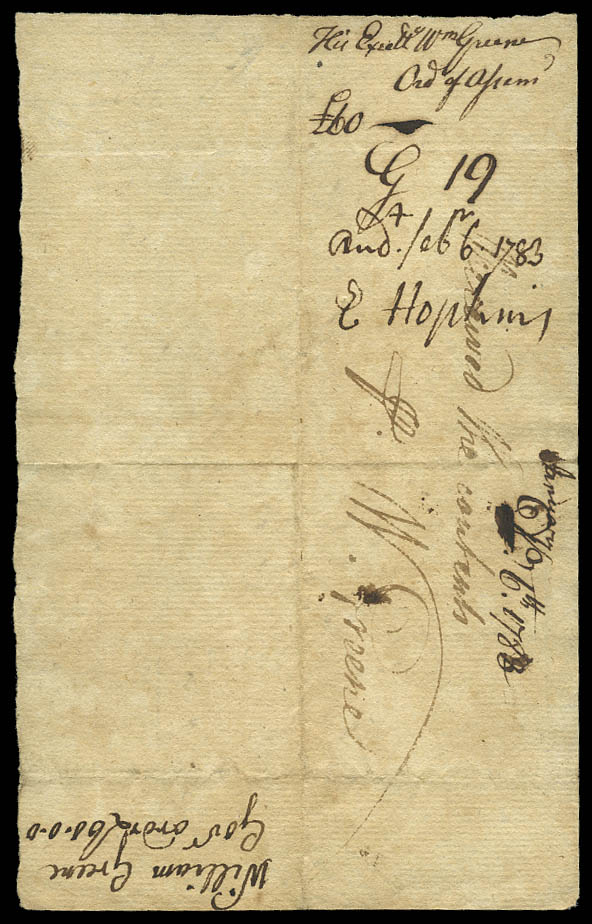 His Excellᵞ Wm Greene
Ord of Assemᵇ
£60
G 19
Aud. Feb 6. 1783
E Hopkins
Received the contents
P. W. Greene
January
6th. 1783
William Greene
Govr ordr £60.0.0